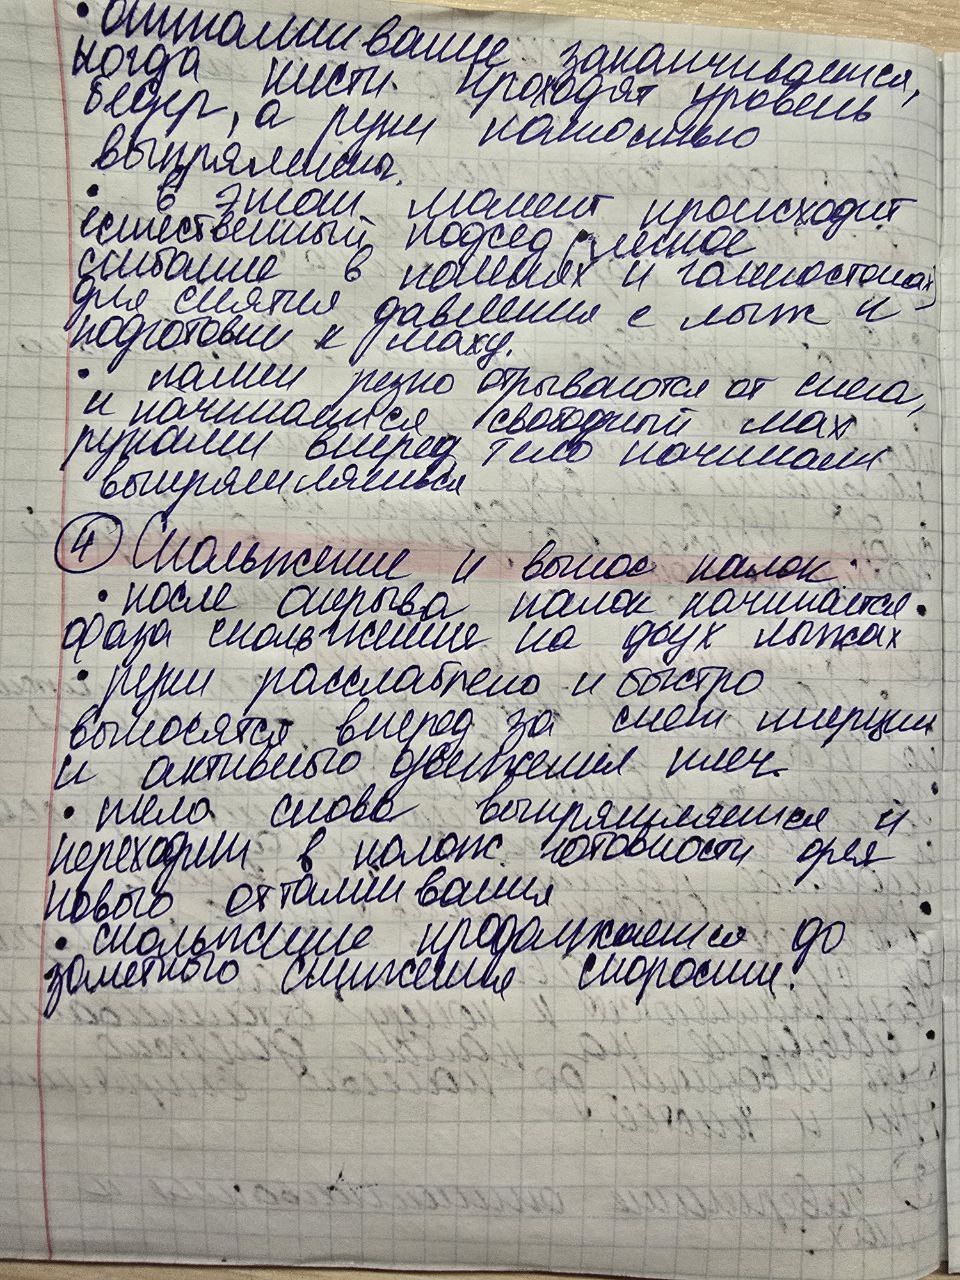 • отталкивание заканчивается,
когда кисти проходят уровень
бедер, а руки полностью
выпрямлены.
• в этот момент происходит
естественный подсед (легкое
сгибание в коленях и голеностопах)
для снятия давления с лыж и
подготовки к маху.
• палки резко отрываются от снега,
и начинается свободный мах
руками вперед тело начинает
выпрямляться
4 Скольжение и вынос палок
• после отрыва палок начинается
фаза скольжения на двух лыжах
• руки расслаблено и быстро
выносятся вперед за счет инерции
и активного движения плеч.
• тело снова выпрямляется и
переходит в полож. готовности для
нового отталкивания
• скольжение продолжается до
заметного снижения скорости.